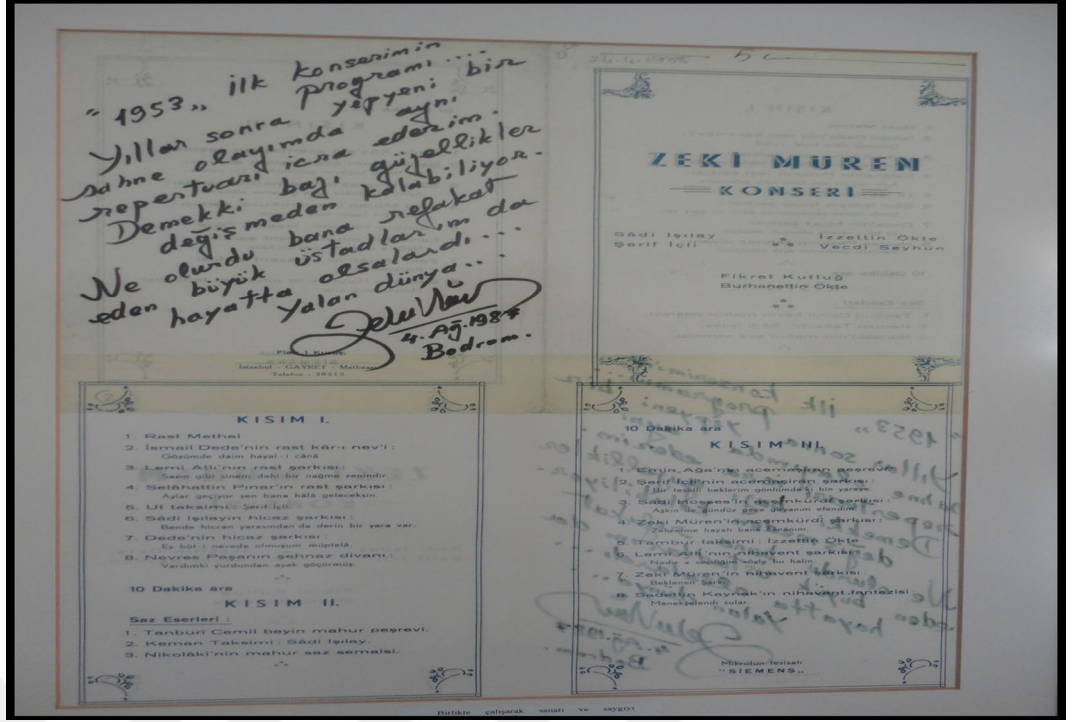 "1953„ ilk konserimin
programı....
Yıllar sonra yepyeni bir
sahne olayımda aynı
repertuarı icra ederim.
Demekki bazı güzellikler
değişmeden kalabiliyor.
Ne olurdu bana refakat
eden büyük üstadlarım da
hayatta olsalardı...
Yalan dünya...
4. Ağ. 1987
Bodrum.
Fiatı 1 Kuruş
İstanbul - GAYRET - Matbaası
Telefon - 20513
24.4.1953
ZEKİ MÜREN
KONSERİ
Sâdi Işılay İzzettin Ökte
Şerif İçli Vecdi Seyhun
Fikret Kutluğ
Burhanettin Ökte
KISIM I.
1. Rast Methal
2. İsmail Dede'nin rast kâr-ı nev'i :
Gözümde daim hayal-i cânâ
3. Lemi Atlı'nın rast şarkısı :
Sazın gibi sinem dahi bir nağme zenindir
4. Selâhattin Pınar'ın rast şarkısı :
Aylar geçiyor sen bana hâlâ geleceksin.
5. Ut taksimi : Şerif İçli.
6. Sâdi Işılayın hicaz şarkısı :
Bende hicran yarasından da derin bir yara var.
7. Dede'nin hicaz şarkısı :
Ey büt-i nevedâ olmuşum müptelâ.
8. Nevres Paşanın şehnaz divanı :
Vardımki yurdundan ayak göçürmüş.
10 Dakika ara
KISIM II.
Saz Eserleri :
1. Tanburî Cemil beyin mahur peşrevi.
2. Keman Taksimi : Sâdi Işılay.
3. Nikolâki'nin mahur saz semaisi.
10 Dakika ara
KISIM III.
1. Emin Ağa'nın acemaşiran peşrevi
2. Şerif İçli'nin acemaşiran şarkısı :
Bir teselli beklerim gönlümdeki bin yareye.
3. Sâdi Hoşses'in acemkürdî şarkısı :
Aşkın ile gündüz gece giryanım efendim
4. Zeki Müren'in acemkürdî şarkısı :
Zehretme hayatı bana cânânım.
5. Tambur taksimi : İzzettin Ökte
6. Lemi Atlı'nın nihavent şarkısı :
Nedir a sevdiğim söyle bu halin.
7. Zeki Müren'in nihavent şarkısı :
Beklenen Şarkı
8. Sadettin Kaynak'ın nihavent fantezisi
Menekşelendi sular.
Mikrofon tesisatı
"SİEMENS„
Birlikte çalışarak sanatı ve saygıyı